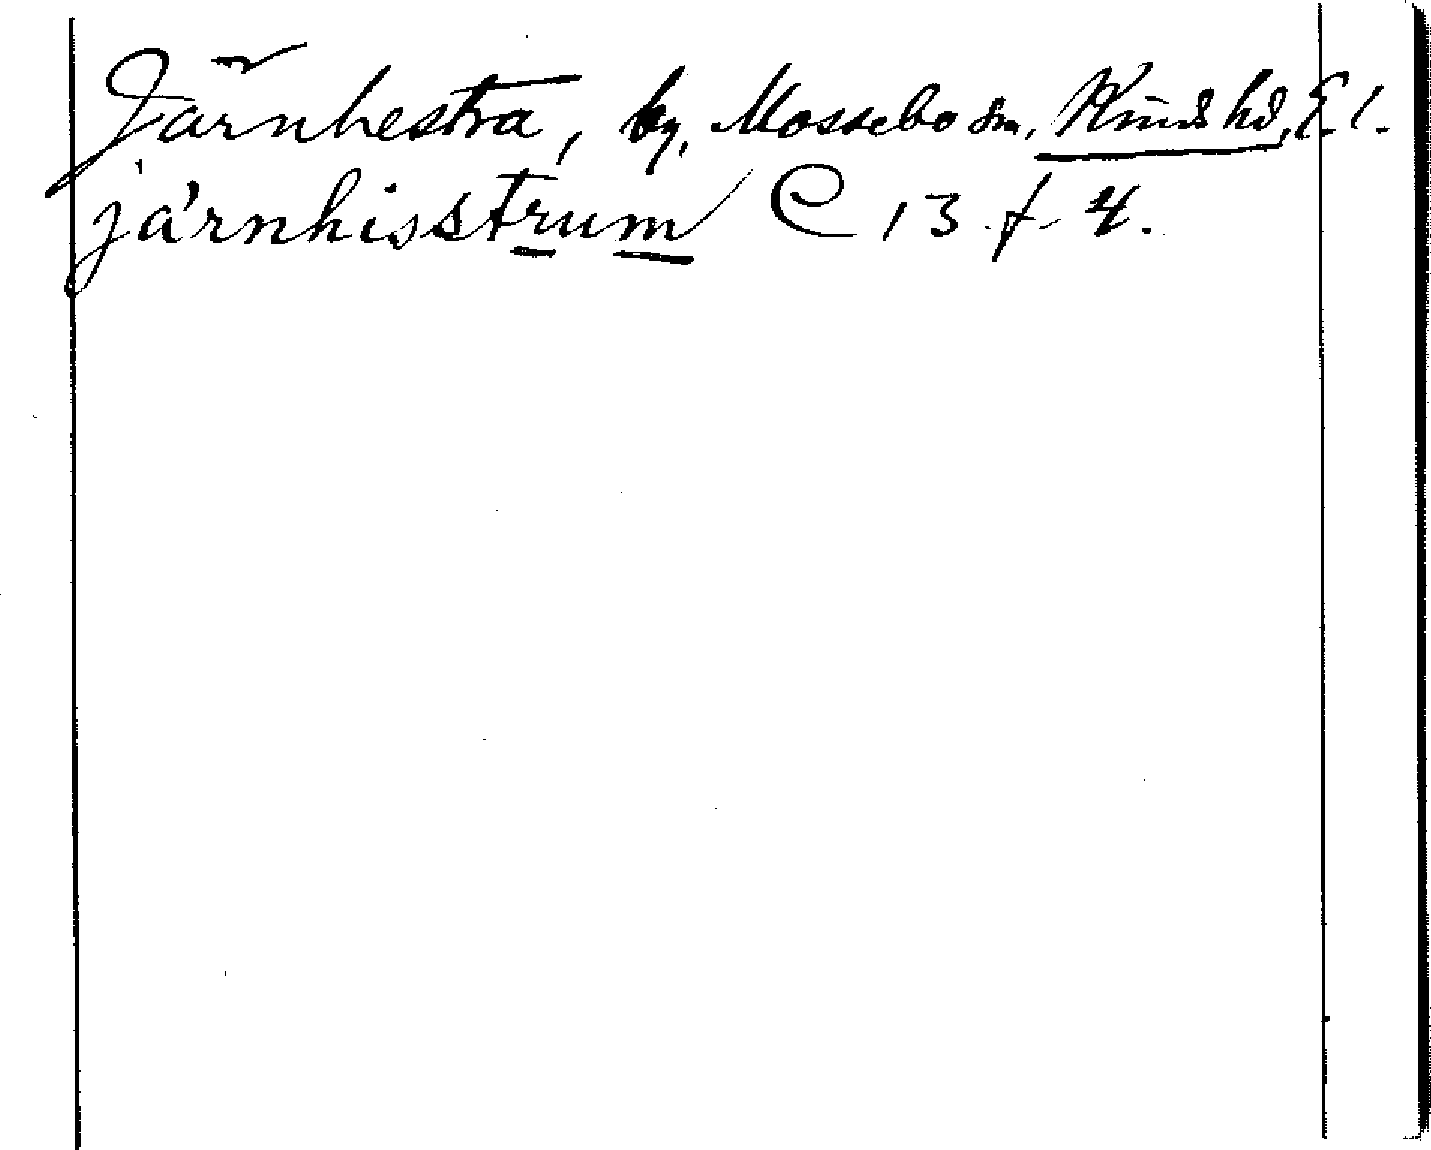 Järnhestra, by, Mossebo sn, Kinds hd, E. l.
järnhisstrum C 13 f 4.